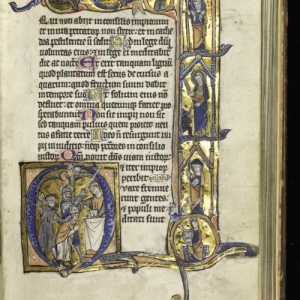 non abiit in consilio impiorum
et in uia peccatorum non stetit: et in cathe
dra pestilentie n̄ sedit. Sed in lege dn̄i
uoluntas eius, et in lege ei meditabit
die ac nocte. Et erit tanquam lignum
quod plantatum est secus decursus a
quarum: quod fructum suum dabit
in tempore suo. Et folium eius non
defluet: et omnia quecunque faciet prospe
rabuntur. Non sic impii non sic:
sed tanquam puluis quem proicit uen
tus a facie terre. Ideo n̄ resurgunt im
pii in iudicio: neque peccatores in consilio
iustorum. Qm̄ nouit dn̄s uiam iustor:
et iter impior
peribit
uare fremue
runt gentes:
et populi me
ditati sunt